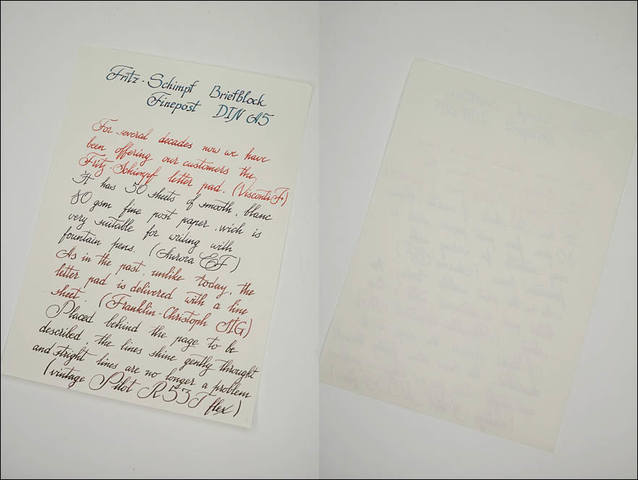 Fritz-Schimpf Briefblock
Finepost DIN A5
For several decades now we have
been offering our customers the
Fritz-Schimpf letter pad. (Visconti F)
It has 50 sheets of smooth, blanc
80 gsm fine post paper, wich is
very suitable for writing with
fountain pens. (Aurora CF)
As in the past, unlike today, the
letter pad is delivered with a line
sheet. (Franklin-Christoph SIG)
Placed behind the page to be
descriled, the lines shine gently throught
and stright lines are no longer a problem
(vintage Pilot R 53 T flex)